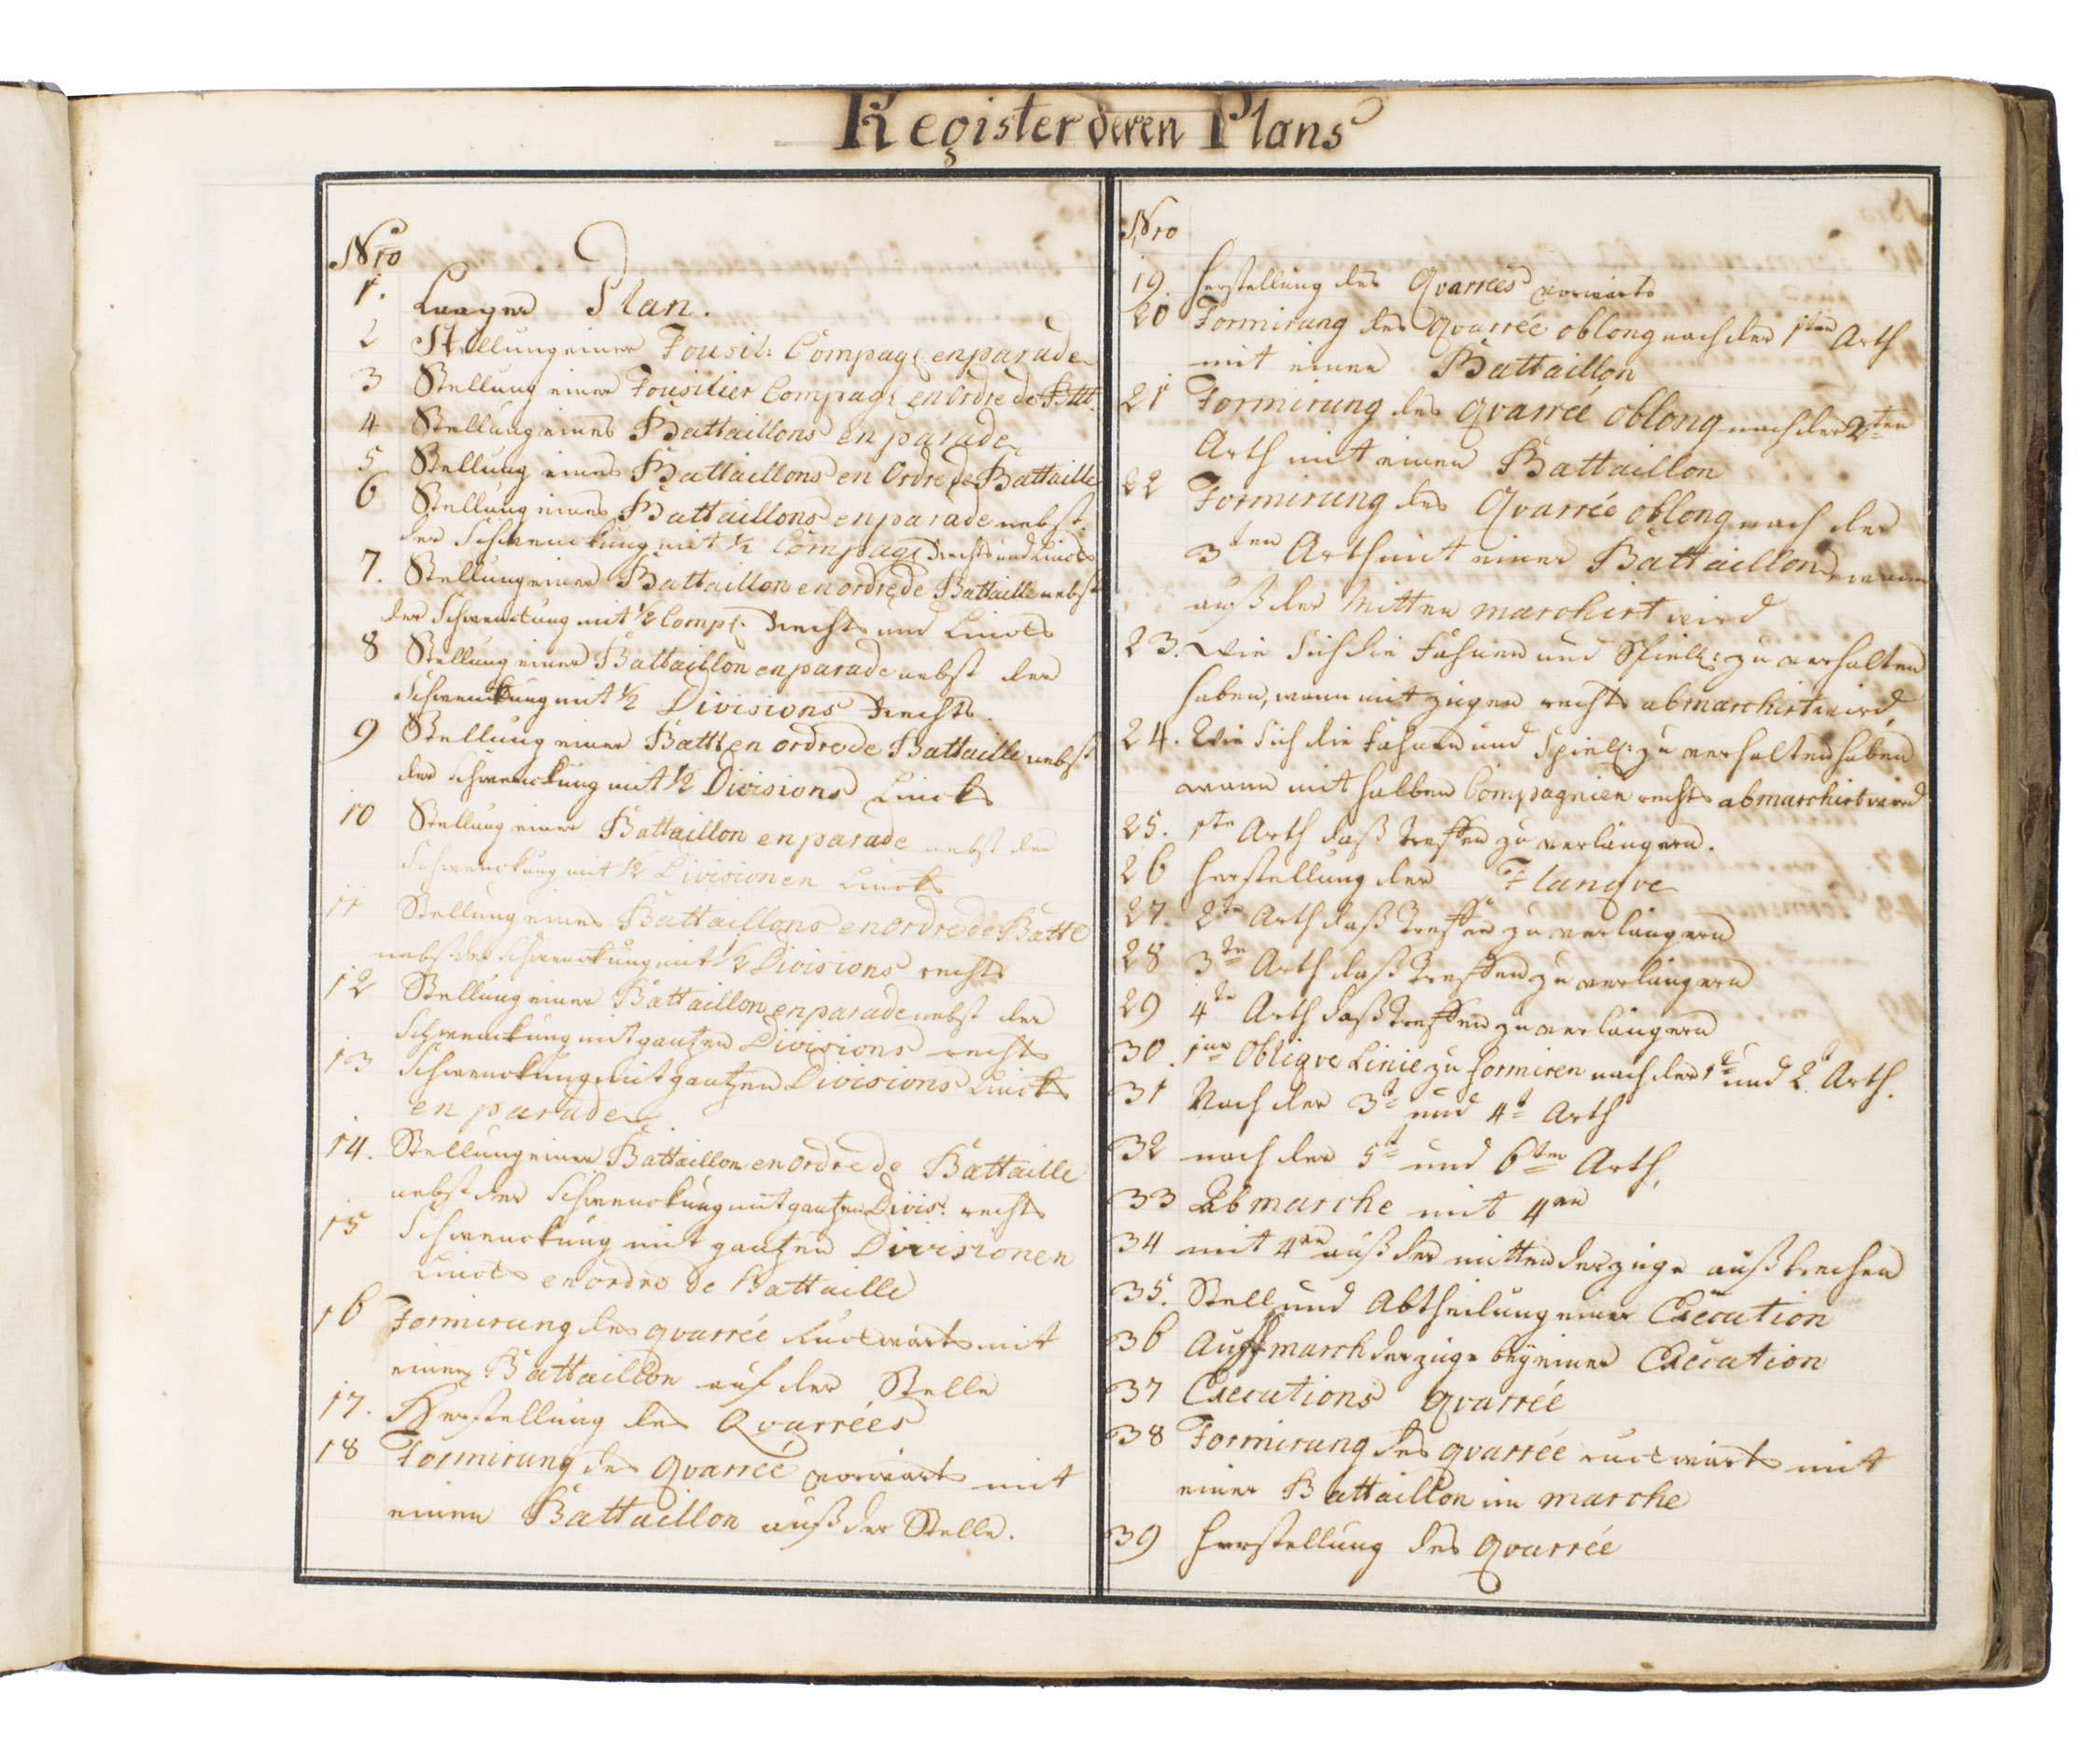 Register deren Plans
Nro
1. Laager Plan.
2 Stellung einer Fousil: Compag: en parade
3 Stellung einer Fousilier Compag: en Ordre de Batt.
4 Stellung eines Battaillons en parade
5 Stellung eines Battaillons en Ordre de Battaille
6 Stellung eines Battaillons en parade nebst
der Schwenckung mit ½ Compag: rechts und Lincks
7. Stellung einer Battaillon en ordre de Battaille nebst
der Schwenckung mit ½ Comp: rechts und Lincks
8 Stellung einer Battaillon en parade nebst der
Schwenckung mit ½ Divisions rechts.
9 Stellung einer Batt: en ordre de Battaille nebst
der Schwenckung mit ½ Divisions Lincks
10 Stellung einer Battaillon en parade nebst der
Schwenckung mit ½ Divisionen Lincks
11 Stellung eines Battaillons en ordre de Batte
nebst der Schwenckung mit ½ Divisions rechts
12 Stellung einer Battaillon en parade nebst der
Schwenckung mit gantzen Divisions rechts
13 Schwenckung mit gantzen Divisions Lincks
en parade
14. Stellung einer Battaillon en Ordre de Battaille
nebst der Schwenckung mit gantzen Divis: rechts
15 Schwenckung mit gantzen Divisionen
Lincks en ordre de Battaille
16 Formirung des qvarrée ruckwärts mit
einer Battaillon auf der Stelle
17. Herstellung des Qvarrées
18 Formirung des qvarrée vorwärts mit
einen Battaillon auß der Stelle.
Nro
19. Herstellung des Qvarrées vorwärts
20 Formirung des Qvarrée oblong nach der 1ten Arth
mit einen Battaillon
21 Formirung des qvarrée oblong nach der 2ten
Arth mit einen Battaillon
22 Formirung des Qvarrée oblong nach der
3ten Arth mit einer Battaillon wann
auß der Mitten marchirt wird
23. Wie Sich die Fahnen und Spiell: zu verhalten
haben, wann mit zügen rechts abmarchirt wird,
24. Wie Sich die Fahnen und Spiell: zu verhalten haben
wann mit halben Compagnien rechts abmarchirt wird
25. 1te Arth daß treffen zu verlängern.
26 Herstellung der Flanqve
27. 2te Arth daß treffen zu verlängern
28 3te Arth daß treffen zu verlängern
29 4te Arth daß treffen zu verlängern
30. 1ne Obliqve Linie zu formiren nach der 1t und 2t Arth.
31 Nach der 3t und 4t Arth
32 nach der 5t und 6ten Arth,
33 Abmarche mit 4en
34 mit 4en auß der mitten der züge auß brechen
35. Stell und Abtheilung einer Execution
36 Auffmarch der züge beÿ einer Execution
37 Executions qvarrée
38 Formirung des qvarrée ruckwärts mit
einer Battaillon im marche
39 Herstellung des qvarrée